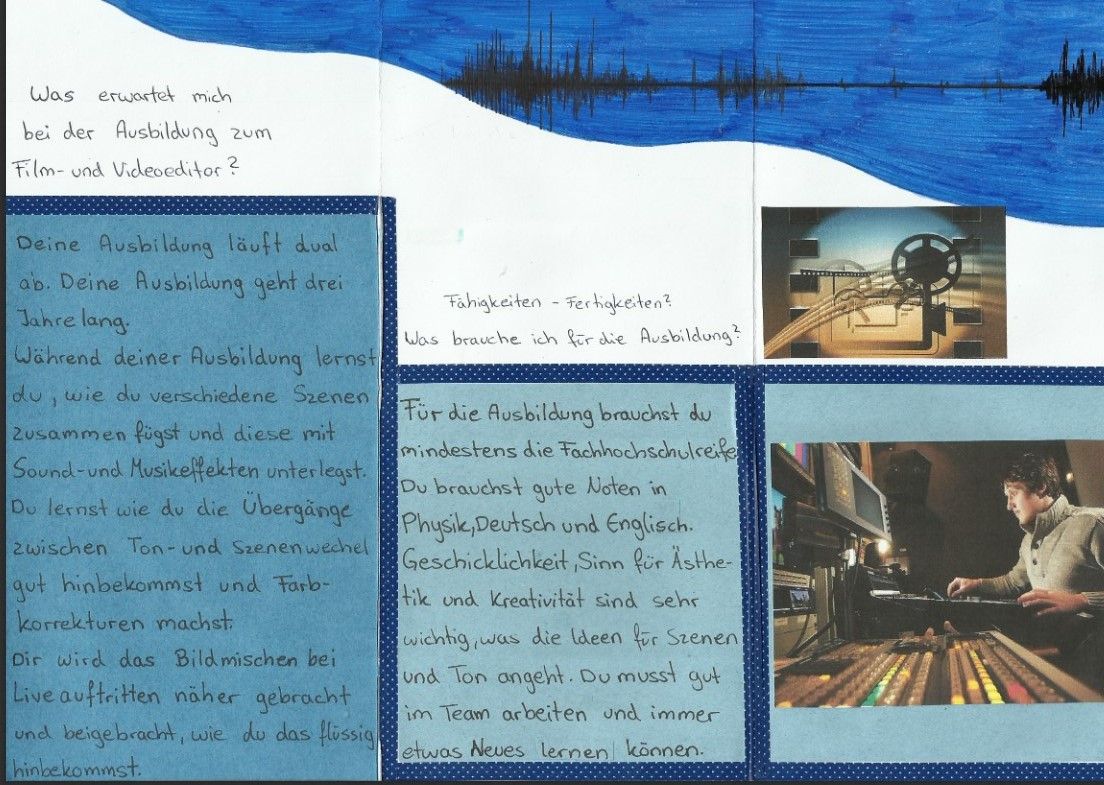 Was erwartet mich
bei der Ausbildung zum
Film- und Videoeditor?
Deine Ausbildung läuft dual
ab. Deine Ausbildung geht drei
Jahre lang.
Während deiner Ausbildung lernst
du, wie du verschiedene Szenen
zusammen fügst und diese mit
Sound- und Musikeffekten unterlegst.
Du lernst wie du die Übergänge
zwischen Ton- und Szenenwechel
gut hinbekommst und Farb-
korrekturen machst.
Dir wird das Bildmischen bei
Liveauftritten näher gebracht
und beigebracht, wie du das flüssig
hinbekommst.
Fähigkeiten - Fertigkeiten?
Was brauche ich für die Ausbildung?
Für die Ausbildung brauchst du
mindestens die Fachhochschulreife
Du brauchst gute Noten in
Physik, Deutsch und Englisch.
Geschicklichkeit, Sinn für Ästhe-
tik und Kreativität sind sehr
wichtig, was die Ideen für Szenen
und Ton angeht. Du musst gut
im Team arbeiten und immer
etwas Neues lernen können.